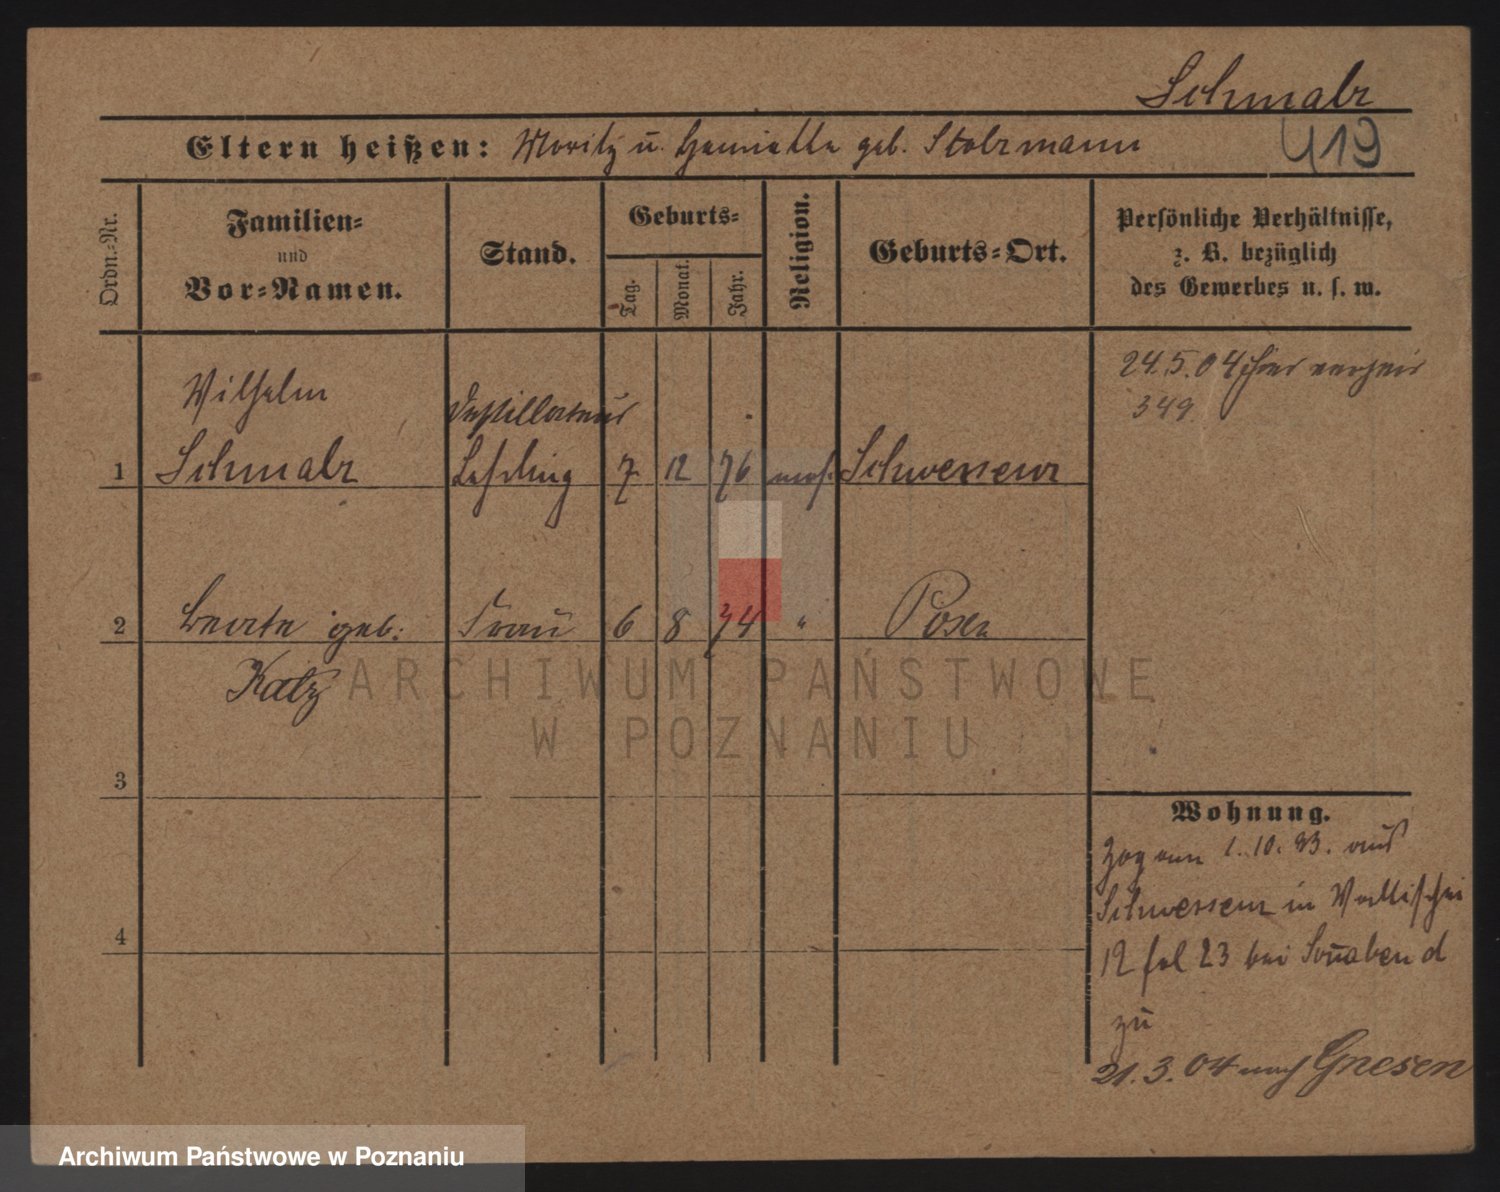 Schmalz
Eltern heißen: Moritz u. Henriette geb. Stolzmann
419
Ordn.-Nr.
Familien-
und
Vor-Namen.
Stand.
Geburts-
Tag.
Monat.
Jahr.
Religion.
Geburts-Ort.
Persönliche Verhältnisse,
z. B. bezüglich
des Gewerbes u. s. w.
24.5.04 hier verheir
349
Wilhelm Destillateur
1 Schmalz Lehrling 7 12 76 mos. Schwersenz
2 Beate geb: Frau 6 8 74 " Posen
Katz
3
4
Wohnung.
Zog am 1.10.93. aus
Schwersenz in Wallischei
12 fol 23 bei Sonabend
zu
21.3.04 nach Gnesen
ARCHIWUM PAŃSTWOWE
W POZNANIU
Archiwum Państwowe w Poznaniu